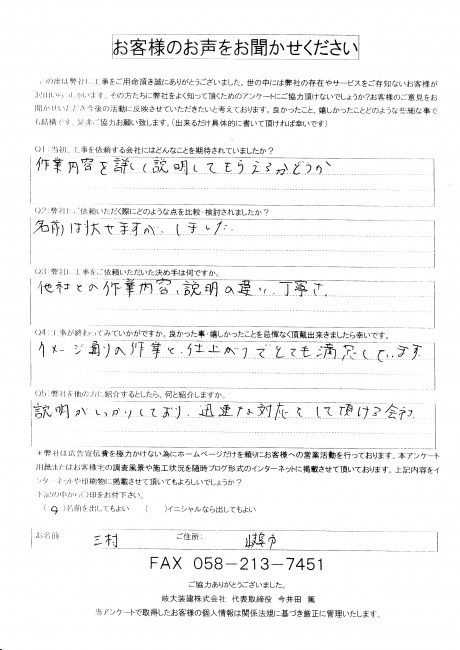 お客様のお声をお聞かせください
この度は弊社に工事をご用命頂き誠にありがとうございました。世の中には弊社の存在やサービスをご存知ないお客様が
沢山いらっしゃいます。その方たちに弊社をよく知って頂くためのアンケートにご協力頂けないでしょうか?お客様のご意見をお
聞かせいただき今後の活動に反映させていただきたいと考えております。良かったこと、嬉しかったことどのような些細な事で
も結構です。是非ご協力お願い致します。(出来るだけ具体的に書いて頂ければ幸いです)
Q1:当初、工事を依頼する会社にはどんなことを期待されていましたか?
作業内容を詳しく説明してもらえるかどうか
Q2:弊社にご依頼いただく際にどのような点を比較・検討されましたか?
名前は伏せますが、しました。
Q3:弊社に工事をご依頼いただいた決め手は何ですか。
他社との作業内容、説明の違い、丁寧さ。
Q4:工事が終わってみていかがですか。良かった事・嬉しかったことを忌憚なく頂戴出来ましたら幸いです。
イメージ通りの作業と、仕上がりでとても満足しています
Q5:弊社を他の方に紹介するとしたら、何と紹介しますか。
説明がしっかりしており、迅速な対応をして頂ける会社
＊弊社は広告宣伝費を極力かけない為にホームページだけを頼りにお客様への営業活動を行っております。本アンケート
用紙またはお客様宅の調査風景や施工状況を随時ブログ形式のインターネットに掲載させて頂いております。上記内容をイ
ンターネットや印刷物に掲載させて頂いてもよろしいでしょうか?
下記の中から〇印をお付下さい。
( )名前を出してもよい ( )イニシャルなら出してもよい
お名前 三村 ご住所: 岐阜市
FAX 058-213-7451
ご協力ありがとうございました。
岐大装建株式会社 代表取締役 今井田 篤
当アンケートで取得したお客様の個人情報は関係法規に基づき厳正に管理いたします。